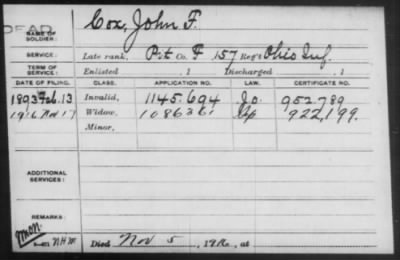 DEAD
NAME OF SOLDIER: Cox, John F.
SERVICE: Late rank, Pvt Co. F 157 Reg't Ohio Inf.
TERM OF SERVICE: Enlisted , 1 Discharged , 1
DATE OF FILING. CLASS. APPLICATION NO. LAW. CERTIFICATE NO.
1893 Feb. 13 Invalid, 1145.694 Jo. 952.789
1916 Nov 17 Widow, 1086361 922,199.
Minor,
ADDITIONAL SERVICES:
REMARKS:
NHM
Died Nov 5, 1916, at